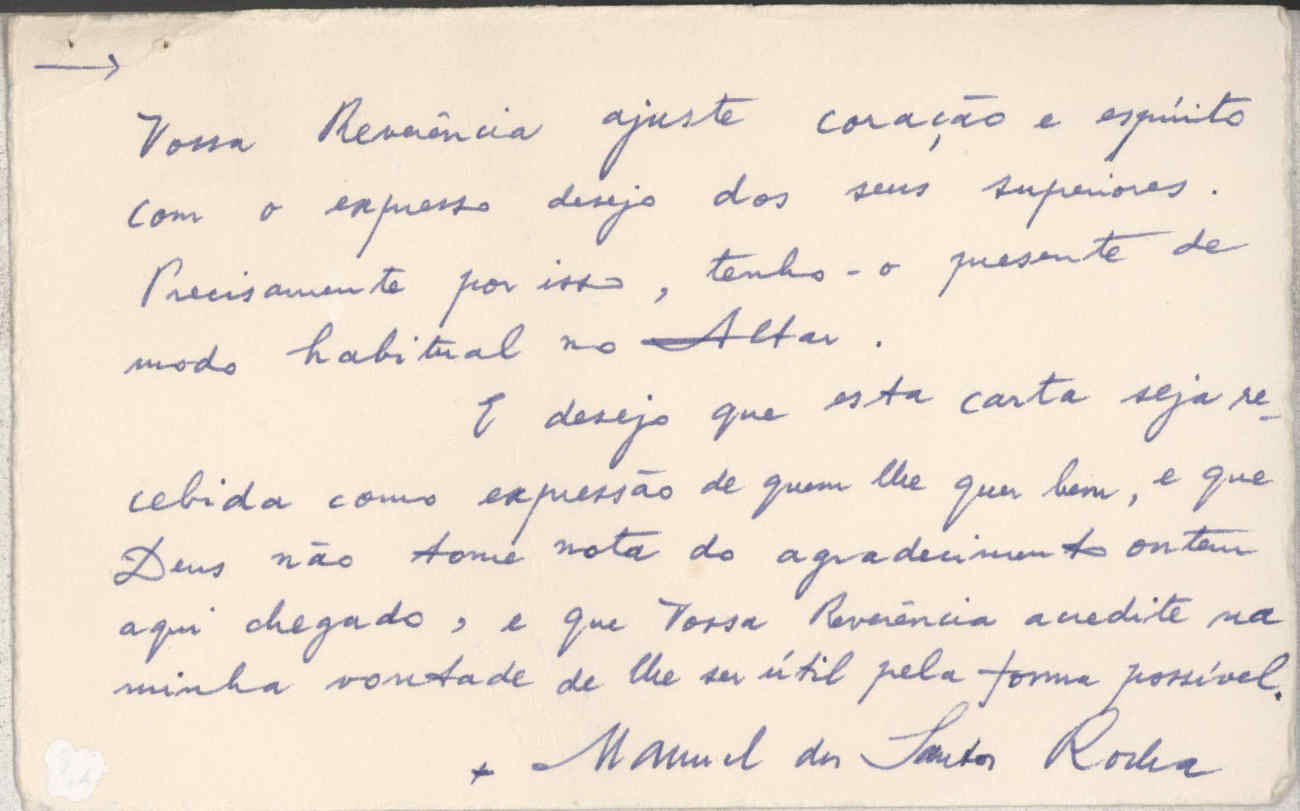 →
Vossa Reverência ajuste coração e espírito
com o expresso desejo dos seus superiores.
Precisamente por isso, tenho-o presente de
modo habitual no Altar.
E desejo que esta carta seja re-
cebida como expressão de quem lhe quer bem, e que
Deus não tome nota do agradecimento ontem
aqui chegado, e que Vossa Reverência acredite na
minha vontade de lhe ser útil pela forma possível.
+ Manuel dos Santos Rocha